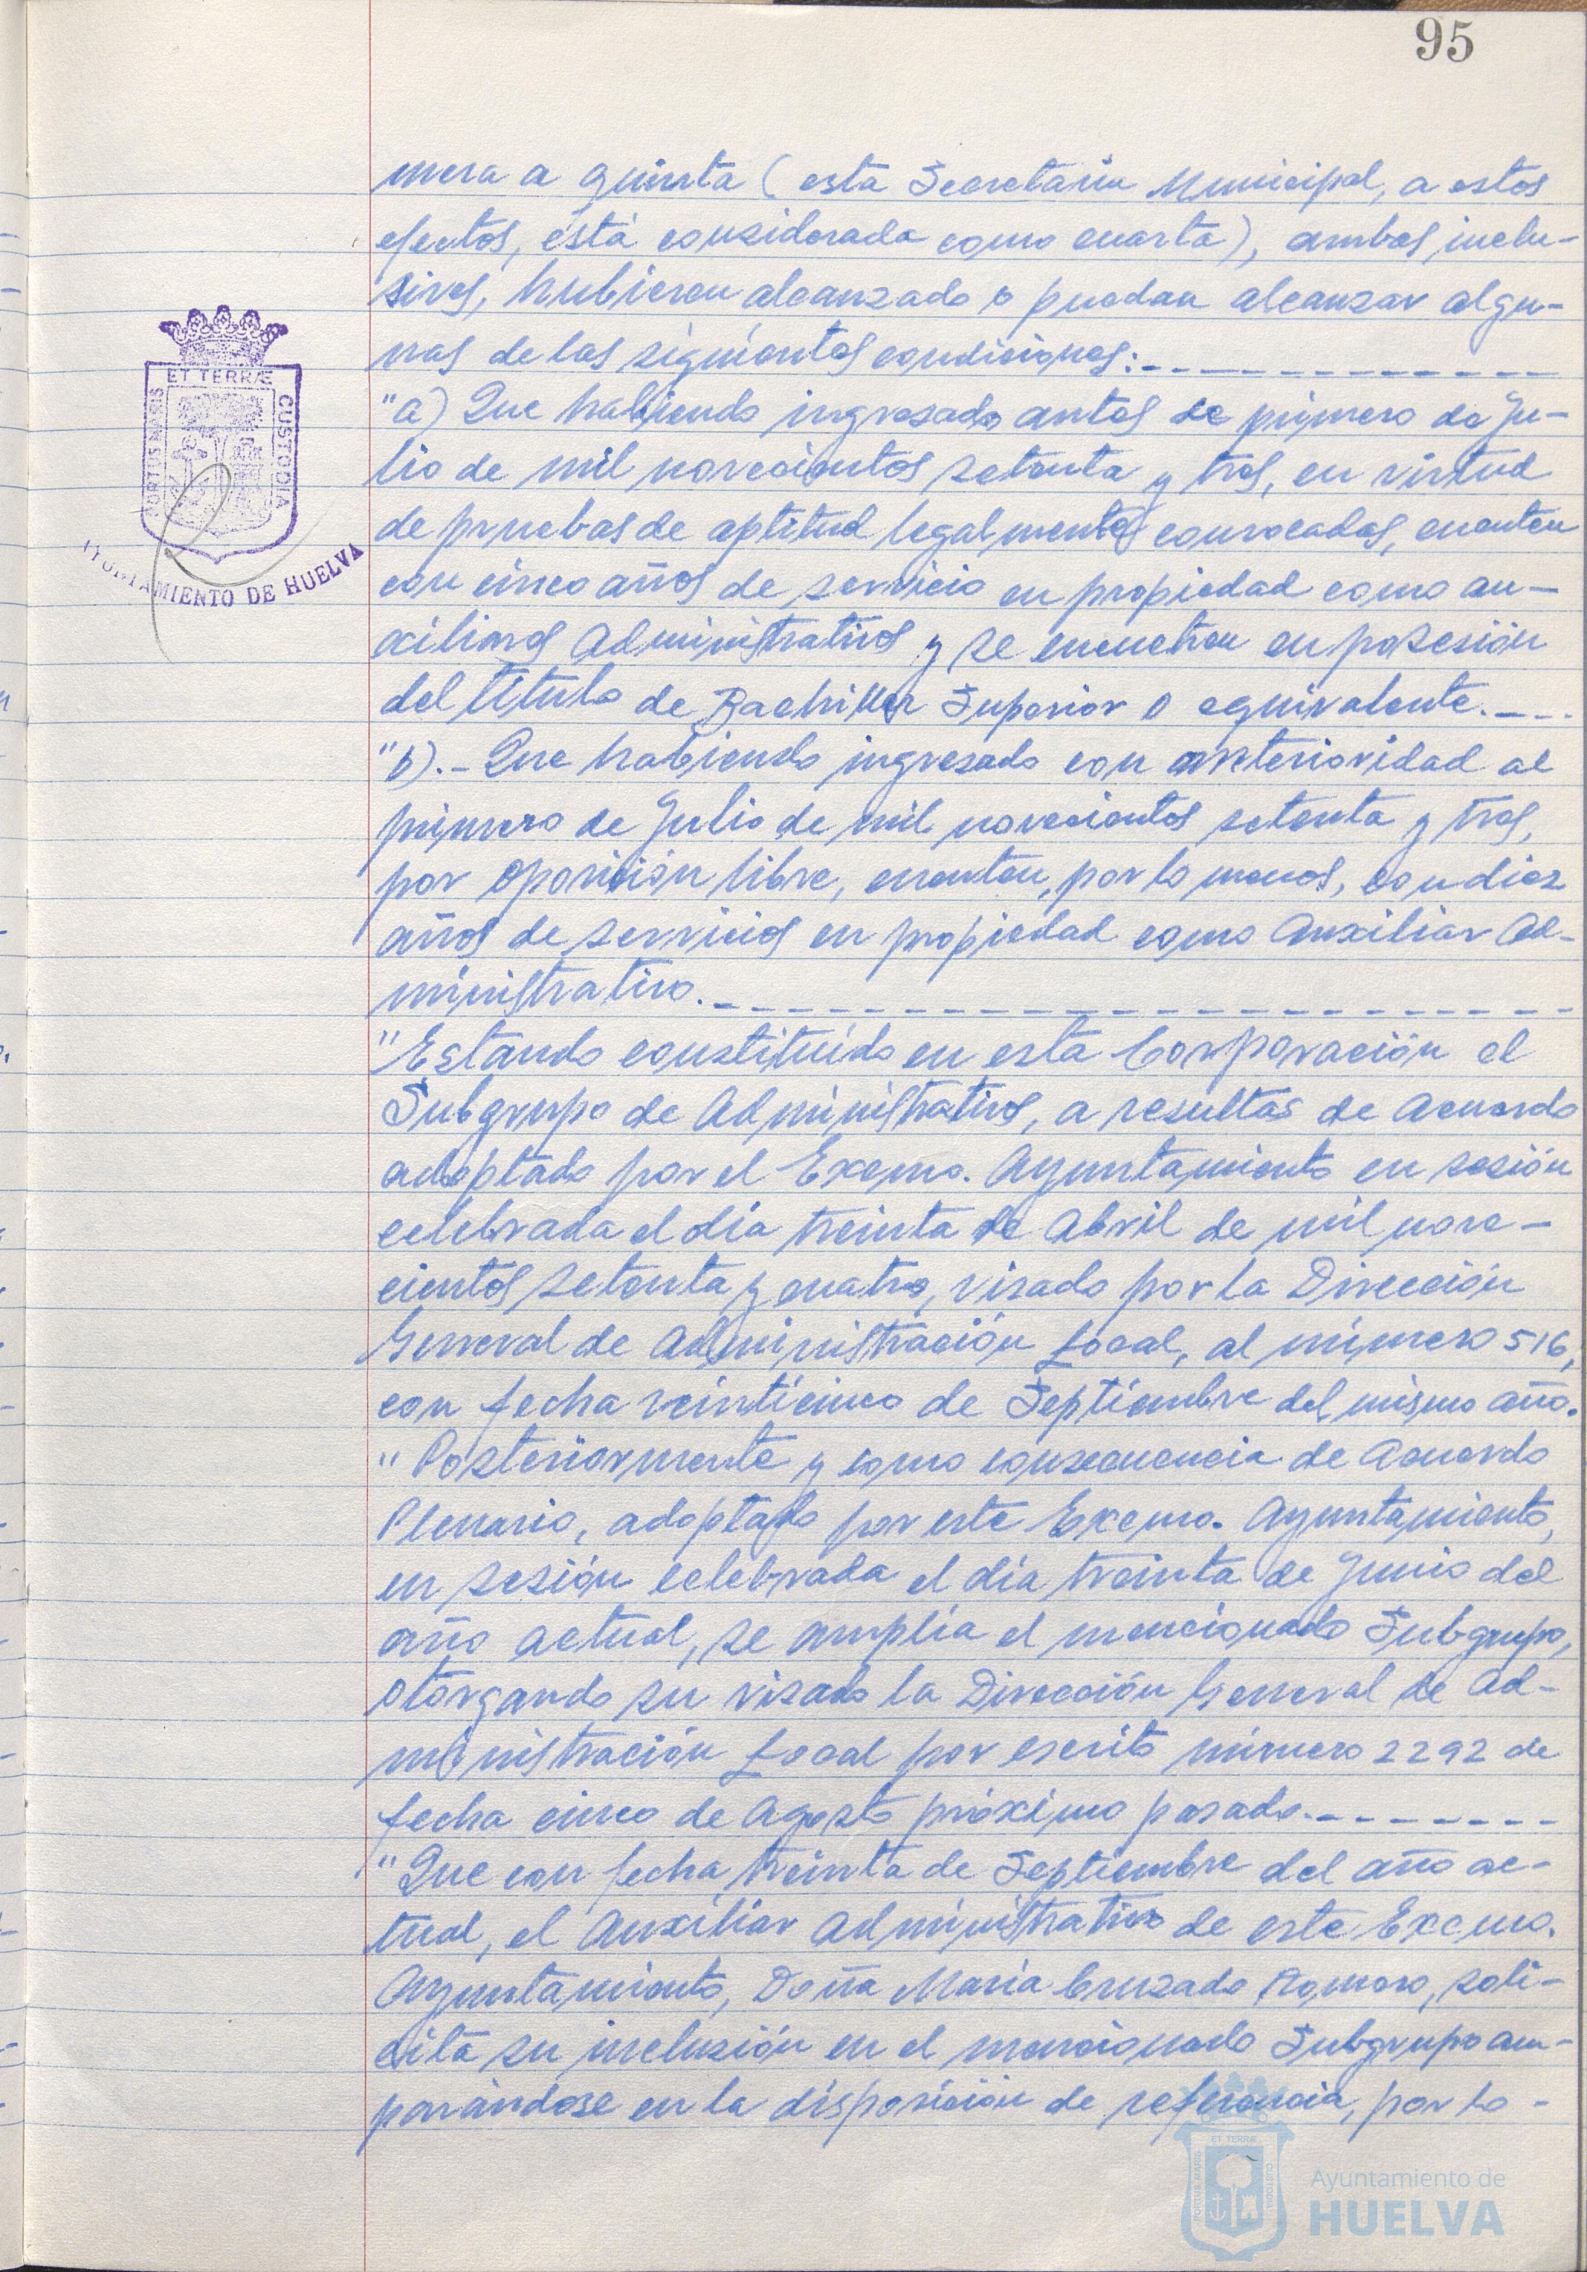 95
mera a quinta (esta Secretaría Municipal, a estos
efectos, está considerada como cuarta), ambas inclu-
sives, hubieren alcanzado o puedan alcanzar algu-
nas de las siguientes condiciones:
"a) Que habiendo ingresado antes de primero de Ju-
lio de mil novecientos setenta y tres, en virtud
de pruebas de aptitud legalmente convocadas, cuenten
con cinco años de servicio en propiedad como au-
xiliares Administrativos y se encuetren en posesión
del título de Bachiller Superior o equivalente.
"b).- Que habiendo ingresado con anterioridad al
primero de Julio de mil novecientos setenta y tres,
por oposición libre, cuenten, por lo menos, con diez
años de servicios en propiedad como Auxiliar Ad-
ministrativo.
"Estando constituído en esta Corporación el
Subgrupo de Administrativos, a resultas de Acuerdo
adoptado por el Excmo. Ayuntamiento en sesión
celebrada el día treinta de Abril de mil nove-
cientos setenta y cuatro, visado por la Dirección
General de Administración Local, al número 516,
con fecha veinticinco de Septiembre del mismo año.
"Posteriormente y como consecuencia de Acuerdo
Plenario, adoptado por este Excmo. Ayuntamiento,
en sesión celebrada el día treinta de Junio del
año actual, se amplía el mencionado Subgrupo,
otorgando su visado la Dirección General de Ad-
ministración Local por escrito número 2292 de
fecha cinco de Agosto próximo pasado.
"Que con fecha treinta de Septiembre del año ac-
tual, el Auxiliar Administrativo de este Excmo.
Ayuntamiento, Doña María Cruzado Romero, soli-
cita su inclusión en el mencionado Subgrupo am-
parándose en la disposición de referencia, por lo-
PORTUS MARIS
ET TERRÆ
CUSTODIA
AYUNTAMIENTO DE HUELVA
PORTUS MARIS
ET TERRÆ
CUSTODIA
Ayuntamiento de
HUELVA